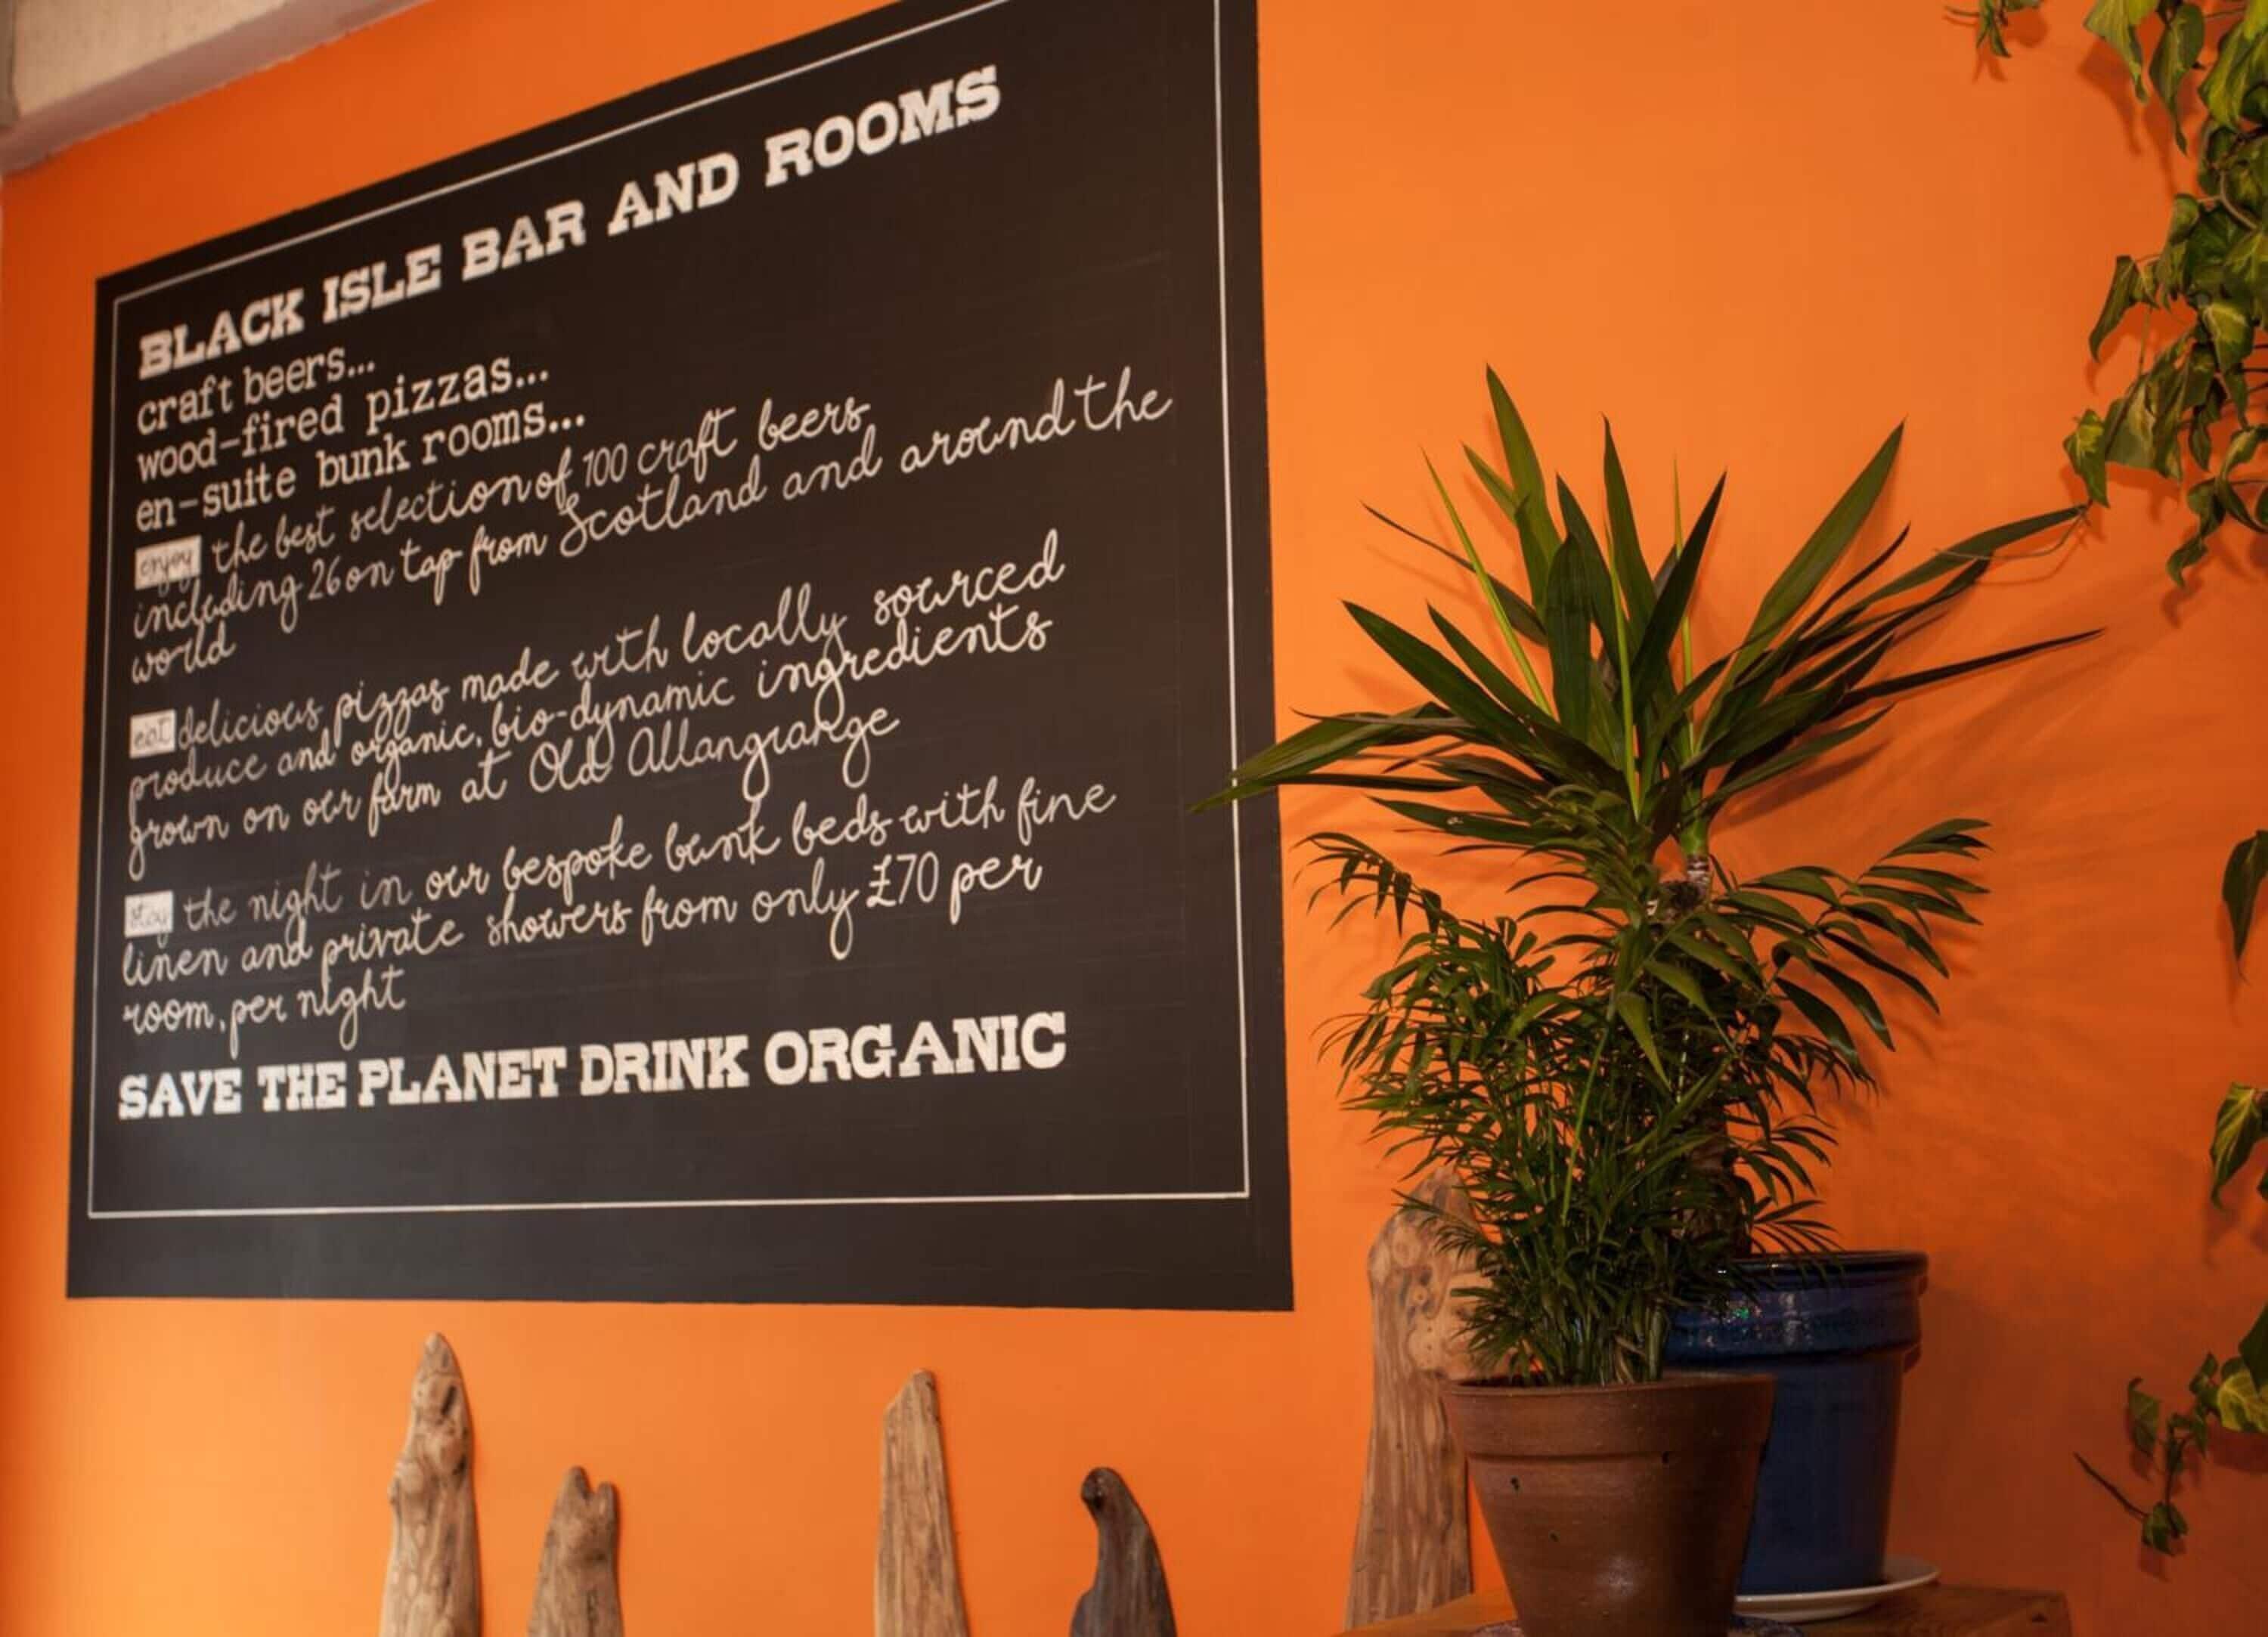 BLACK ISLE BAR AND ROOMS
craft beers...
wood-fired pizzas...
en-suite bunk rooms...
enjoy the best selection of 100 craft beers,
including 26 on tap from Scotland and around the
world
eat delicious pizzas made with locally sourced
produce and organic, bio-dynamic ingredients
grown on our farm at Old Allangrange
stay the night in our bespoke bunk beds with fine
linen and private showers from only £70 per
room, per night
SAVE THE PLANET DRINK ORGANIC